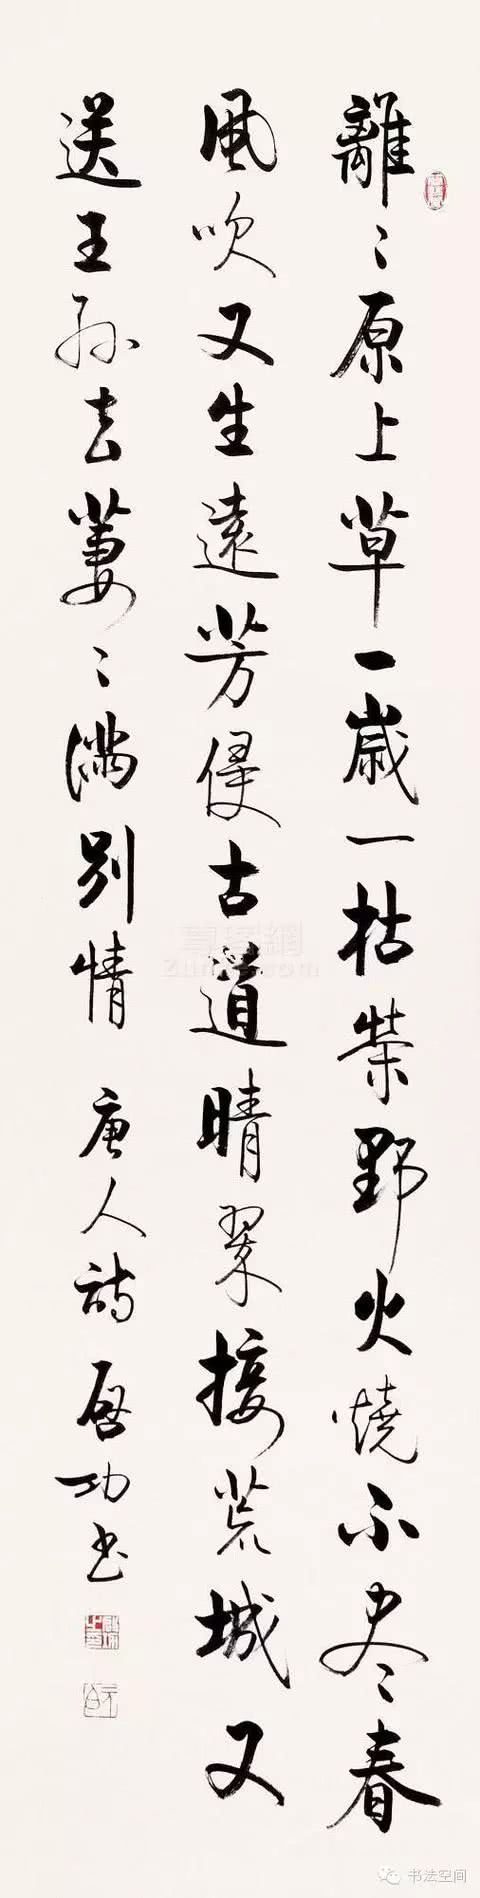 離〻原上草一歲一枯榮野火燒不尽〻春
風吹又生遠芳侵古道晴翠接荒城又
送王孫去萋〻滿別情 唐人詩 啟功书
书法空间